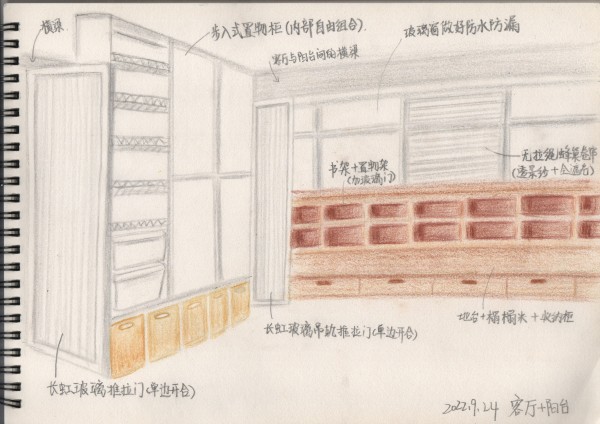 横梁
步入式置物柜(内部自由组合)
玻璃窗做好防水防漏
客厅与阳台间的横梁
书架+置物架
(勿玻璃门)
无拉绳蜂巢帘
地台+榻榻米+收纳柜
长虹玻璃吊轨推拉门(单边开合)
长虹玻璃推拉门(单边开合)
2022.9.24 客厅+阳台